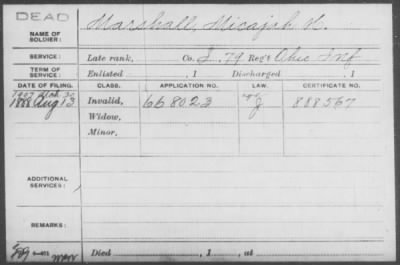 DEAD
NAME OF SOLDIER: Marshall, Micajah
SERVICE: Late rank, Co. I. 79 Reg't Ohio Inf
TERM OF SERVICE: Enlisted , 1 Discharged , 1
DATE OF FILING. CLASS. APPLICATION NO. LAW. CERTIFICATE NO.
1888 Aug 13 Invalid, 668023 888567
Widow,
Minor,
ADDITIONAL SERVICES:
REMARKS:
Died , 1 , at